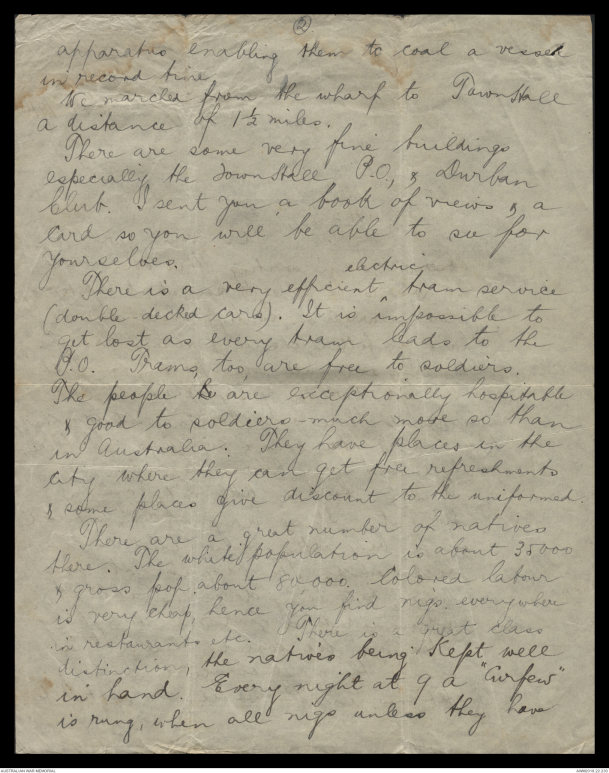 ②
apparatus enabling them to coal a vessel
in record time.
We marched from the wharf to Town Hall
a distance of 1½ miles.
There are some very fine buildings
especially the Town Hall P.O., & Durban
Club. I sent you a book of views & a
card so you will be able to see for
yourselves.
electric
There is a very efficient tram service
(double decked cars). It is impossible to
get lost as every tram leads to the
P.O. Trams, too, are free to soldiers.
The people are exceptionally hospitable
& good to soldiers - much more so than
in Australia. They have places in the
city where they can get free refreshments
& some places give discount to the uniformed.
There are a great number of natives
there. The white population is about 35000
& gross pop. about 80,000. Colored labour
is very cheap, hence you find nigs. everywhere
in restaurants etc. There is a great class
distinction, the natives being kept well
in hand. Every night at 9 a "Curfew"
is rung, when all nigs unless they have
AUSTRALIAN WAR MEMORIAL